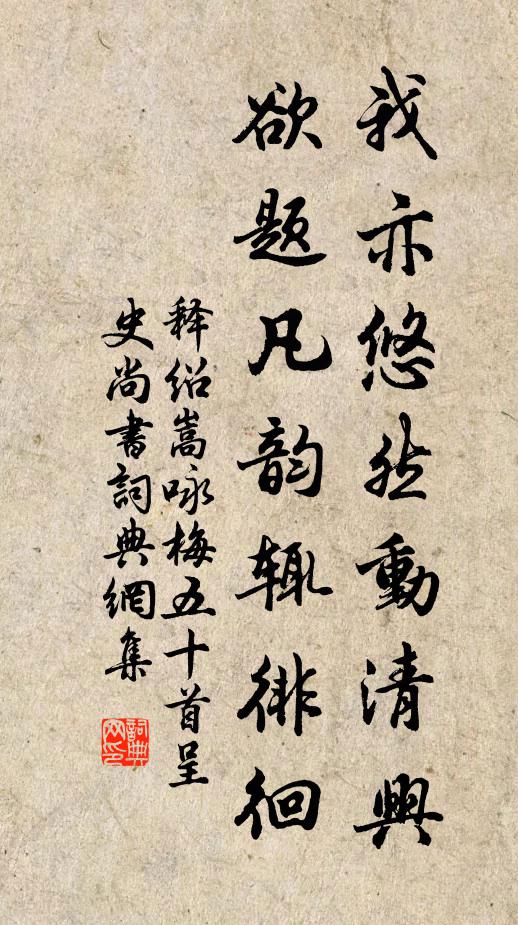 我亦悠然動清興
欲题凡韵辄徘徊
释绍嵩咏梅五十首呈
史尚書詞典網集
詞典
网印